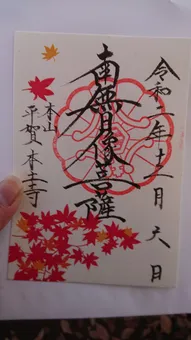 令和二年十一月天日
南無日像菩薩
本山
平賀本土寺